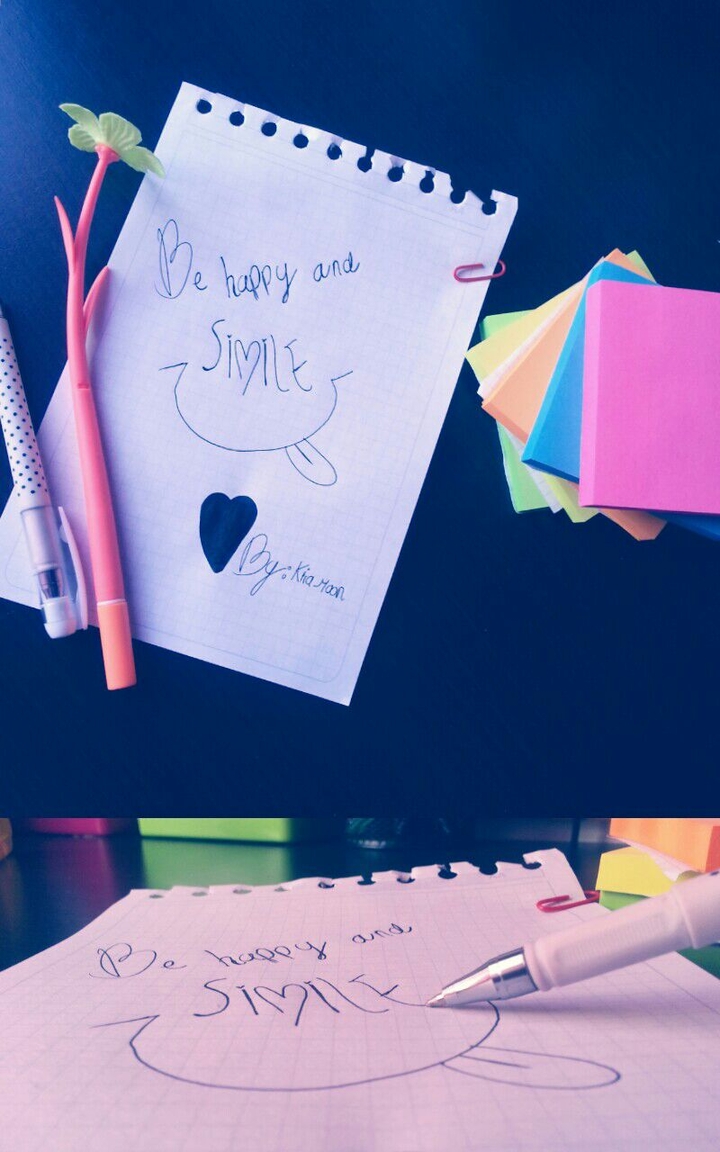 Be happy and
SiMILE
By: Moon
Be happy and
SiMILE